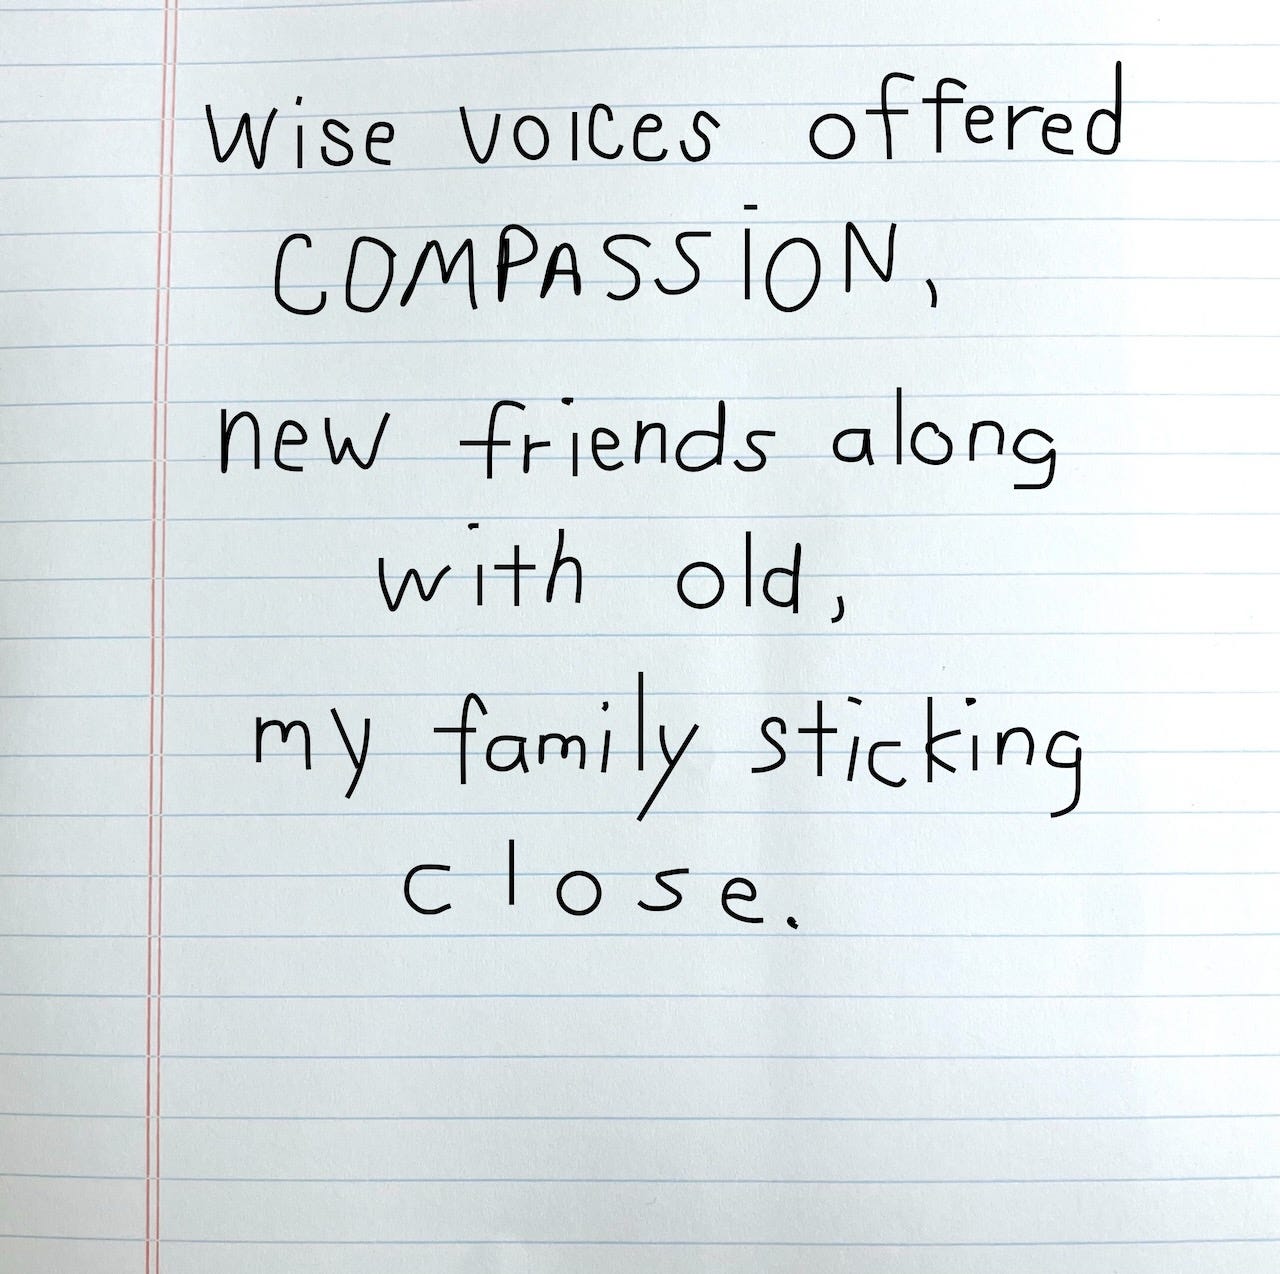 Wise voices offered
COMPASSiON,
new friends along
with old,
my family sticking
close.